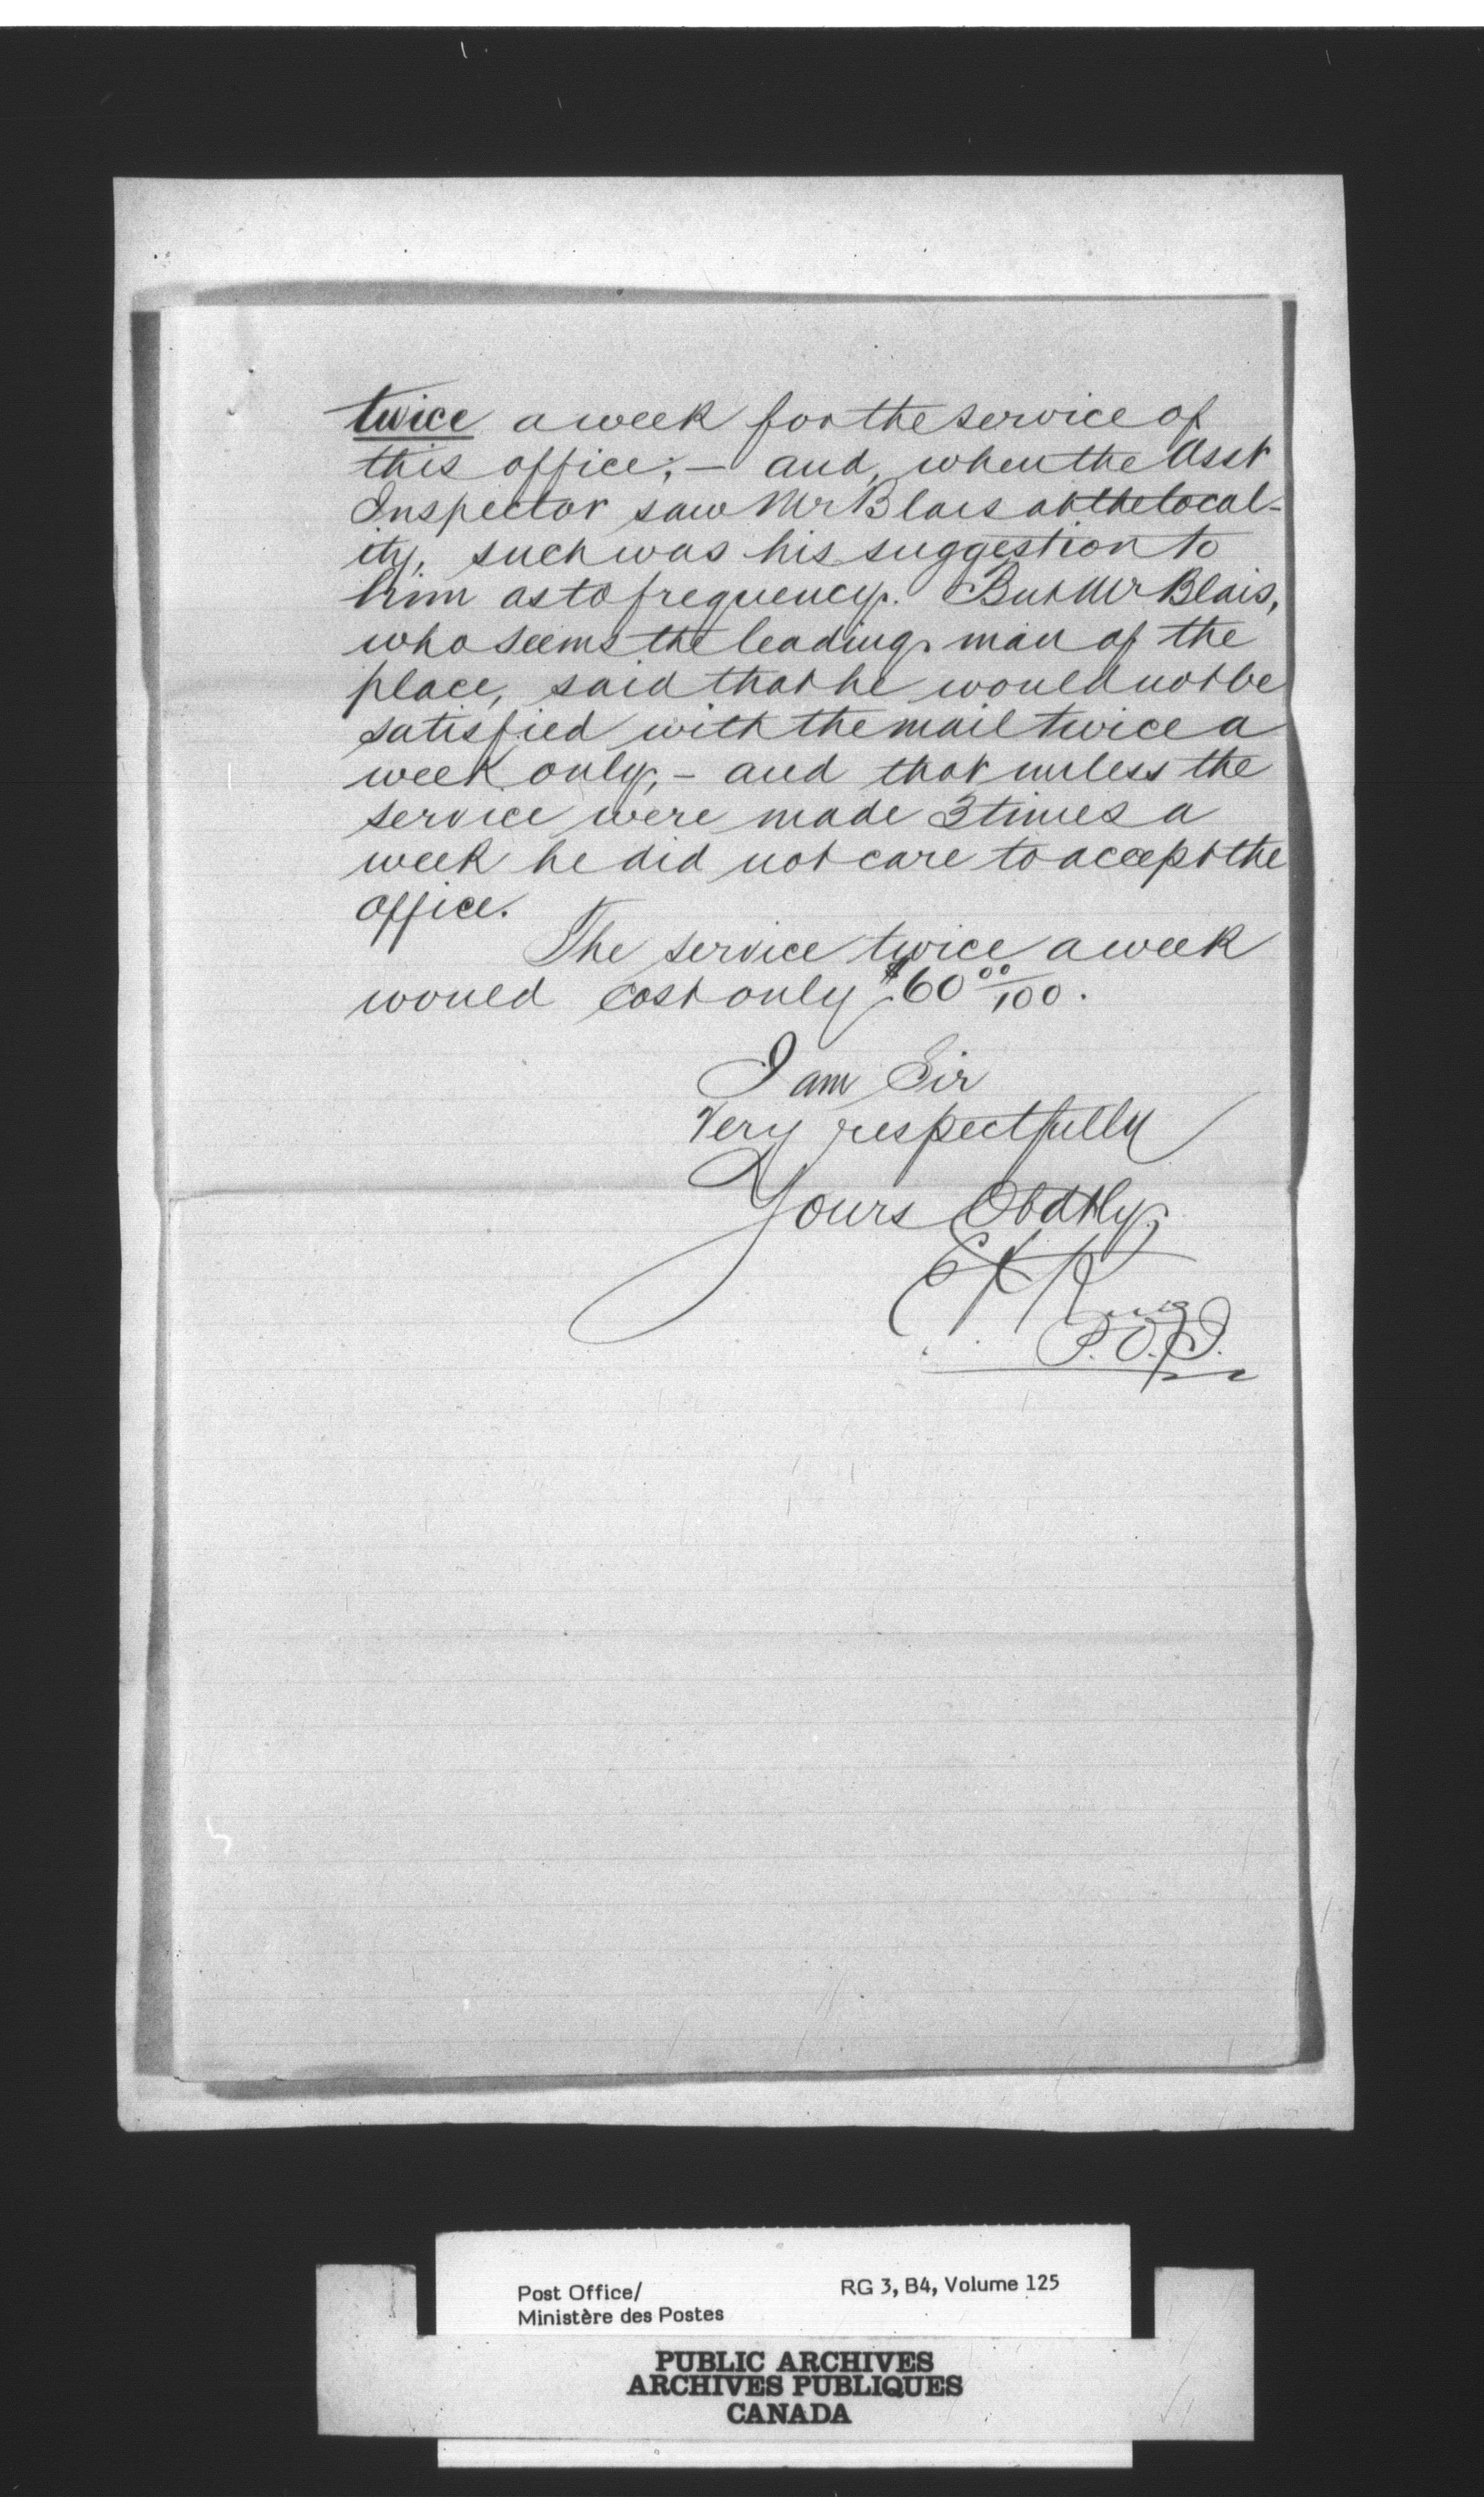 twice a week for the service of
this office; — and, when the Asst
Inspector saw Mr Blais at the local-
ity, such was his suggestion to
him as to frequency. But Mr Blais,
who seems the leading man of the
place, said that he would not be
satisfied with the mail twice a
week only, — and that unless the
service were made 3 times a
week he did not care to accept the
office.
The service twice a week
would cost only $60 00/100.
I am Sir
Very respectfully
Yours Obdtly
P.O.I.
Post Office/
Ministère des Postes
RG 3, B4, Volume 125
PUBLIC ARCHIVES
ARCHIVES PUBLIQUES
CANADA